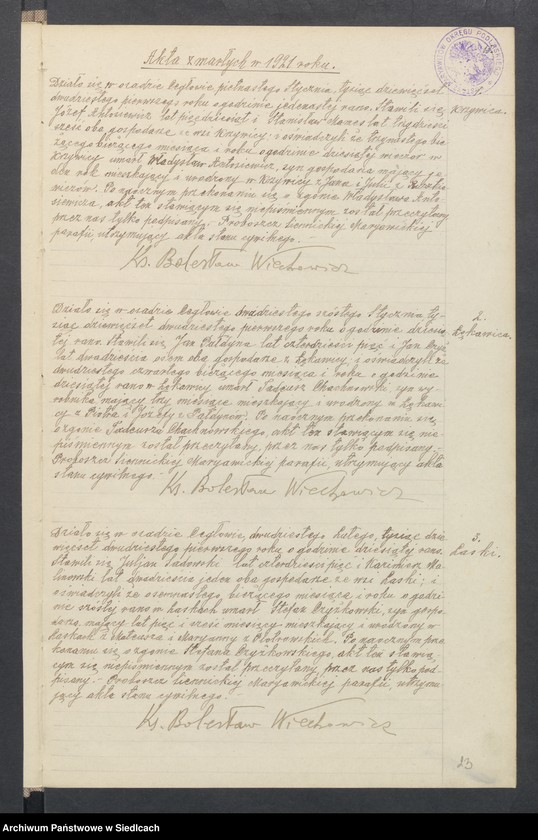 Akta zmarłych w 1921 roku.
Działo się w osadzie Cegłowie piętnastego Stycznia, tysiąc dziewięćset
dwudziestego pierwszego roku o godzinie jedenastej rano. Stawili się
Krzywica.
Józef Antosiewicz lat pięćdziesiąt i Stanisław lat trzydzieści
sześć oba gospodarze ze wsi Krzywicy; i oświadczyli że trzynastego bie-
żącego bieżącego miesiąca i roku o godzinie dziesiątej wieczór w
Krzywicy umarł Władysław Antosiewicz, syn gospodarza mający je-
den rok mieszkający i urodzony w Krzywicy z Jana i Julii z
Po naocznym przekonaniu się o zgonie Władysława Anto-
siewicza, akt ten stawającym się niepiśmiennym, został przeczytany
przez nas tylko podpisany. Proboszcz Siennickiej Maryawickiej
parafii, utrzymujący akta stanu cywilnego. –
Ks. Bolesław Wiechowicz
Działo się w osadzie Cegłowie dwudziestego szóstego Stycznia ty-
2.
siąc dziewięćset dwudziestego pierwszego roku o godzinie dziesią-
Łękawica.
tej rano. Stawili się Jan Padzyna lat czterdzieści pięć i Jan
lat dwadzieścia osiem oba gospodarze z Łękawicy; i oświadczyli że
dwudziestego czwartego bieżącego miesiąca i roku o godzinie
dziesiątej rano w Łękawicy umarł Tadeusz Chachnowski syn wy-
robnika mający trzy miesiące mieszkający i urodzony w Łękawi-
cy z Piotra i Józefy z Po naocznym przekonaniu się
o zgonie Tadeusza Chachnowskiego, akt ten stawającym się nie-
piśmiennym został przeczytany, przez nas tylko podpisany. –
Proboszcz Siennickiej Maryawickiej parafii, utrzymujący akta
stanu cywilnego. –
Ks. Bolesław Wiechowicz
Działo się w osadzie Cegłowie, dwudziestego Lutego, tysiąc dzie-
3.
więćset dwudziestego pierwszego roku o godzinie dziesiątej rano.
Łaski.
Stawili się Julian Sadowski lat czterdzieści pięć i Kazimierz Ma-
linowski lat dwadzieścia jeden oba gospodarze ze wsi Łaski; i
oświadczyli że osiemnastego, bieżącego miesiąca i roku o godzi-
nie szóstej rano w Łaskach umarł Stefan Czyżkowski, syn gospo-
darza, mający lat pięć i sześć miesięcy mieszkający i urodzony w
Łaskach z Mateusza i Maryanny z Piotrowskich. Po naocznym prze-
konaniu się o zgonie Stefana Czyżkowskiego, akt ten stawają-
cym się niepiśmiennym został przeczytany, przez nas tylko pod-
pisany. – Proboszcz Siennickiej Maryawickiej parafii, utrzymu-
jący akta stanu cywilnego. –
Ks. Bolesław Wiechowicz
Archiwum Państwowe w Siedlcach